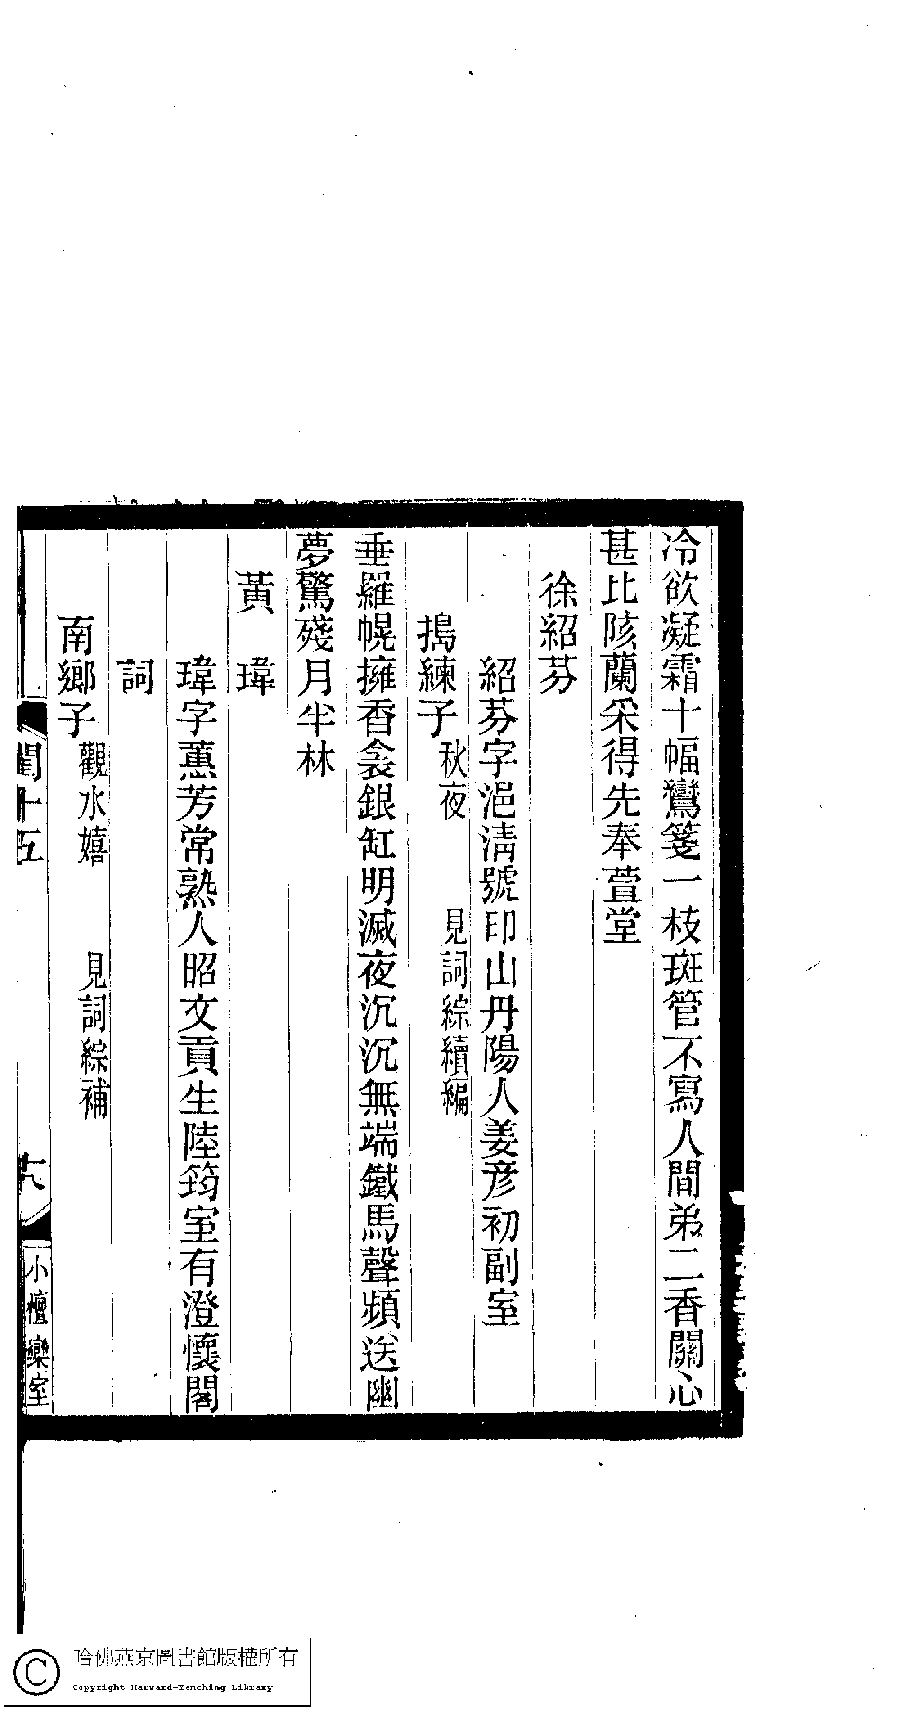 冷欲凝霜十幅鸞箋一枝斑管不寫人間弟二香關心
甚比陔蘭采得先奉萱堂
徐紹芬
紹芬字浥淸號印山丹陽人姜彥初副室
搗練子秋夜 見詞綜續編
垂羅幌擁香衾銀缸明滅夜沉沉無端鐵馬聲頻送幽
夢驚殘月半林
黃瑋
瑋字蕙芳常熟人昭文貢生陸筠室有澄懷閣
詞
南鄉子觀水嬉 見詞綜補
閨十五
十八
小檀欒室
哈佛燕京圖書館版權所有
Copyright Harvard-Yenching Library